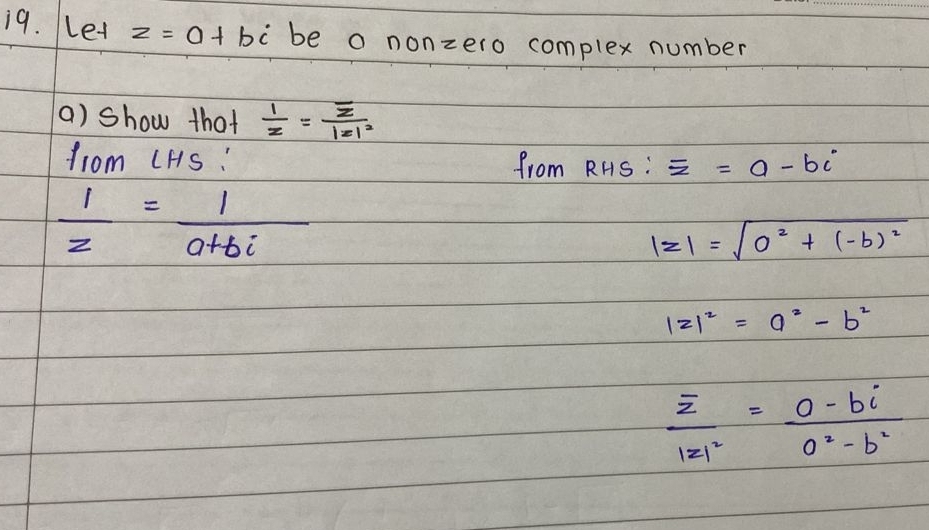 19. Let z = a + bi be a nonzero complex number
a) Show that 1/z = z̄/|z|²
from LHS :
1/z = 1/(a+bi)
from RHS : z̄ = a - bi
|z| = √(a² + (-b)²)
|z|² = a² - b²
z̄/|z|² = (a - bi)/(a² - b²)